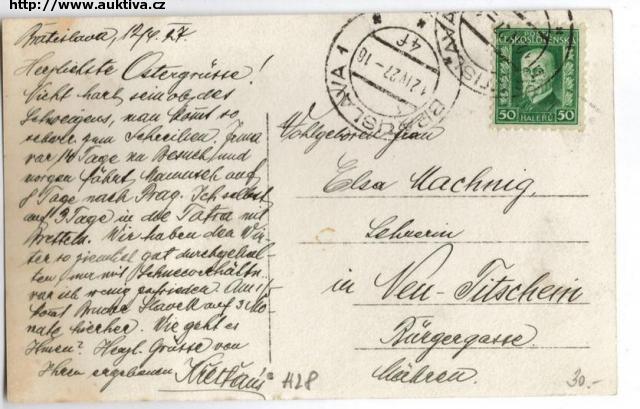 http://www.auktiva.cz
Bratislava, 12/4. 27.
Herzlichste Ostergrüsse!
Nicht harb sein ob des
Schweigens, man kommt so
schwer zum Schreiben. Irma
war 14 Tage zu Besuch und
morgen fährt Mamusch auf
8 Tage nach Prag. Ich selbst
auf 3 Tage in die Tatra mit
Bretteln. Wir haben den Win-
ter so ziemlich gut durchgehal-
ten nur mit Schneeverhältn.
war ich wenig zufrieden. Am 1/5
kommt Bruder Slavek auf 3 Mo-
nate hierher. Wie geht es
Ihnen? Herzl. Grüsse von
Ihrem ergebenen
BRATISLAVA 1
12.IV.27.-16
4f
ČESKOSLOVENSKÁ
50 HALÉŘŮ 50
Wohlgeboren Frau
Elsa Machnig,
Lehrerin
in Neu-Titschein
Bürgergasse.
Mähren.
H28
30.-